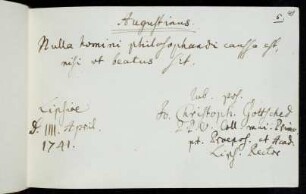 Augustinus.
Nulla homini philosophandi caussa est,
nisi ut beatus sit.
Lipsiae
d. IIII. April.
1741.
Jo. Christoph. Gottsched
P. P. O. Coll. min. Princ.
pt. Praepos. et Acad.
Lips. Rector